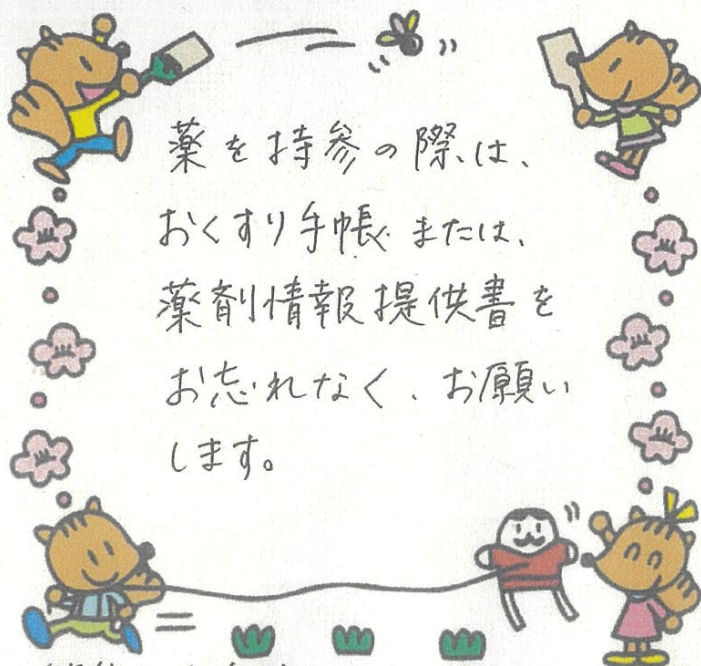 薬を持参の際は、
おくすり手帳または、
薬剤情報提供書を
お忘れなく、お願い
します。